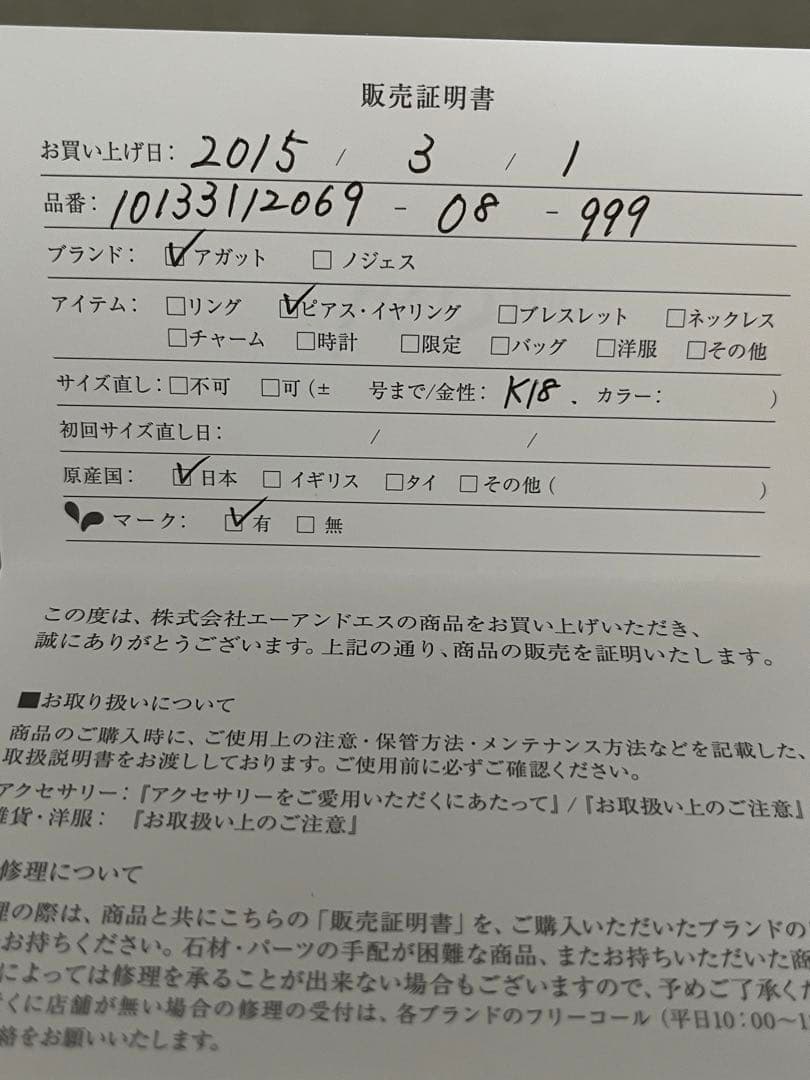 販売証明書
お買い上げ日： 2015 / 3 / 1
品番： 10133112069 - 08 - 999
ブランド： ☑アガット □ノジェス
アイテム： □リング ☑ピアス・イヤリング □ブレスレット □ネックレス
□チャーム □時計 □限定 □バッグ □洋服 □その他
サイズ直し：□不可 □可（± 号まで/金性： K18 . カラー： ）
初回サイズ直し日： / /
原産国： ☑日本 □イギリス □タイ □その他（ ）
マーク： ☑有 □無
この度は、株式会社エーアンドエスの商品をお買い上げいただき、
誠にありがとうございます。上記の通り、商品の販売を証明いたします。
■お取り扱いについて
商品のご購入時に、ご使用上の注意・保管方法・メンテナンス方法などを記載した、
取扱説明書をお渡ししております。ご使用前に必ずご確認ください。
アクセサリー：『アクセサリーをご愛用いただくにあたって』/『お取扱い上のご注意』
雑貨・洋服： 『お取扱い上のご注意』
修理について
理の際は、商品と共にこちらの「販売証明書」を、ご購入いただいたブランドの
お持ちください。石材・パーツの手配が困難な商品、またお持ちいただいた商
によっては修理を承ることが出来ない場合もございますので、予めご了承くだ
くに店舗が無い場合の修理の受付は、各ブランドのフリーコール（平日10：00〜1
絡をお願いいたします。